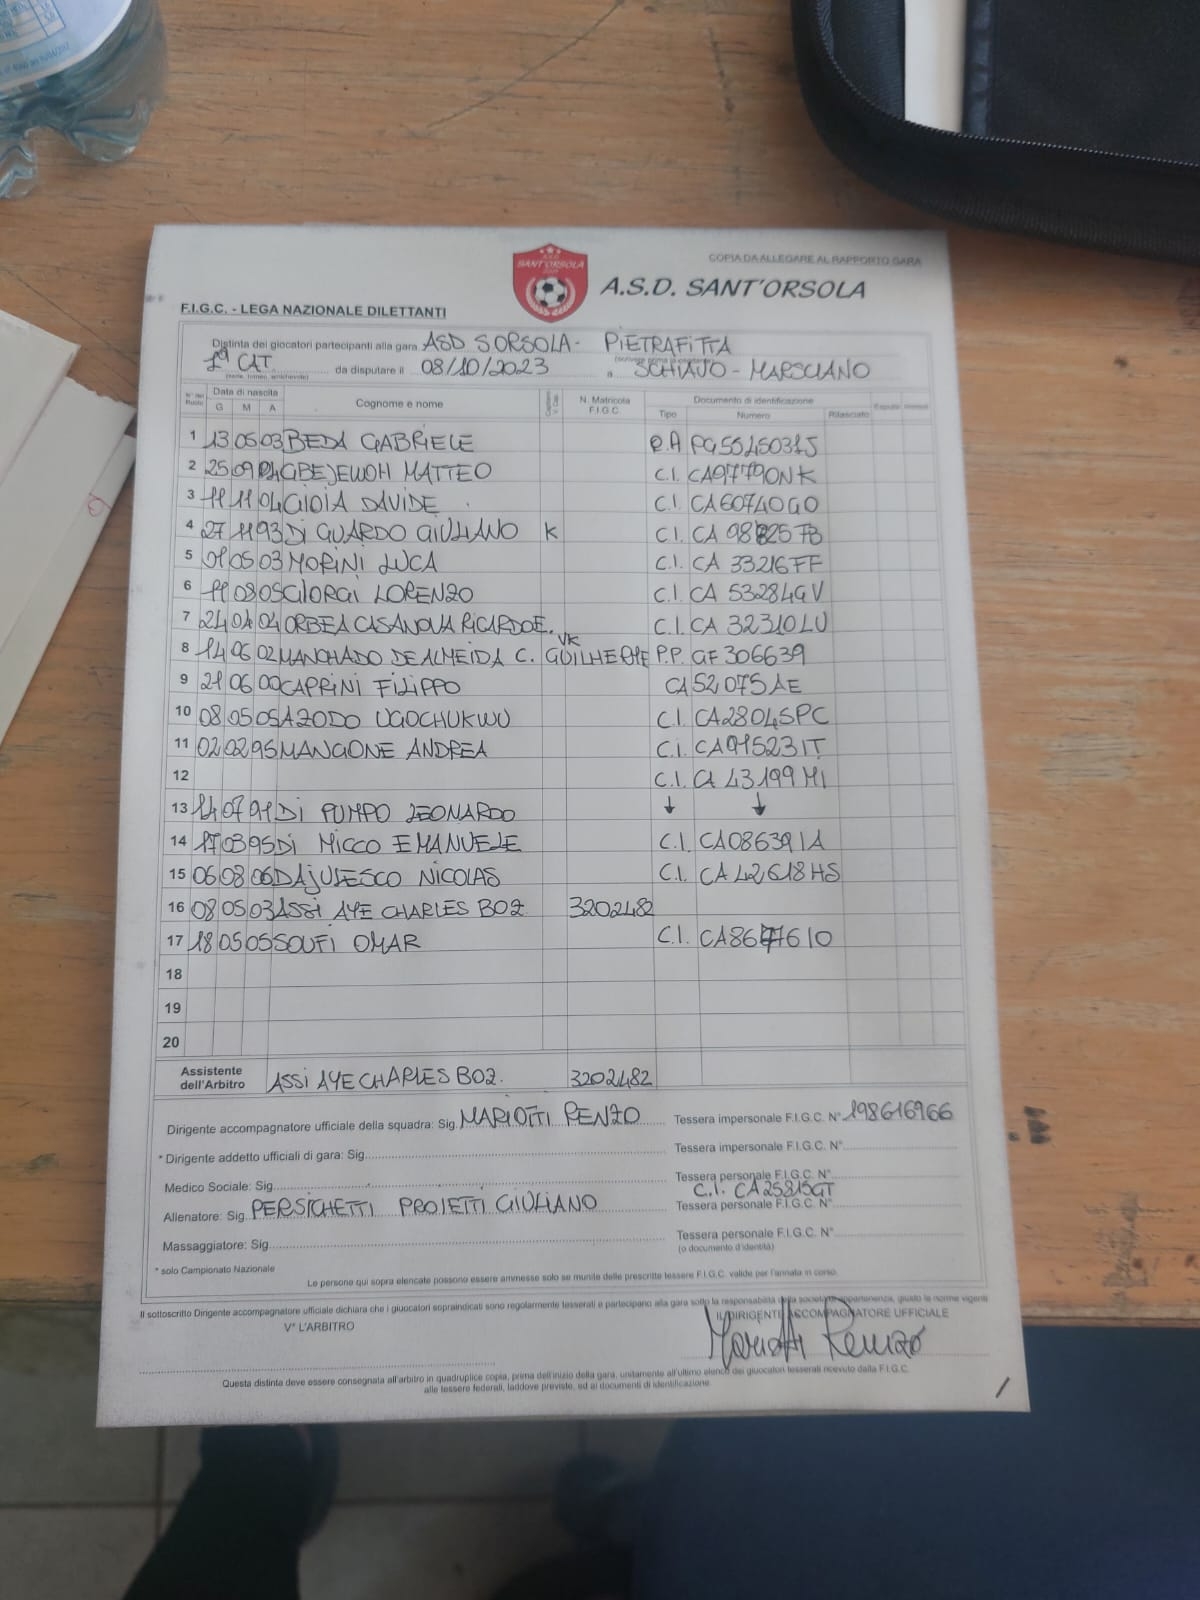 COPIA DA ALLEGARE AL RAPPORTO GARA
SANT'ORSOLA
A.S.D. SANT'ORSOLA
F.I.G.C. - LEGA NAZIONALE DILETTANTI
Distinta dei giocatori partecipanti alla gara ASD S ORSOLA - PIETRAFITTA
1ª CAT. da disputare il 08/10/2023 a SCHIAVO - MARSCIANO
Data di nascita Cognome e nome N. Matricola F.I.G.C. Documento di identificazione
G M A Tipo Numero Rilasciato
1 13 05 03 BEDA GABRIELE P.A PG5545031J
2 25 09 04 GBEJEWOH MATTEO C.I. CA97790NK
3 11 11 04 GIOIA DAVIDE C.I. CA60740GO
4 27 11 93 Di GUARDO GIULIANO K C.I. CA 98825FB
5 01 05 03 MORINI LUCA C.I. CA 33216FF
6 11 08 05 GIORGI LORENZO C.I. CA 53284GV
7 24 04 04 ORBEA CASANOVA RICARDO E. C.I. CA 32310LU
8 14 06 02 MANCHADO DE ALMEIDA C. GUILHERME VK P.P. GF306639
9 21 06 00 CAPRINI FILIPPO CA52075AE
10 08 05 05 AZODO UGOCHUKWU C.I. CA28045PC
11 02 02 95 MANGIONE ANDREA C.I. CA91523IT
12 C.I. CA 43199MI
13 14 07 91 Di PUMPO LEONARDO ↓ ↓
14 17 03 95 Di MICCO EMANUELE C.I. CA08639IA
15 06 08 06 DAJULESCO NICOLAS C.I. CA42618HS
16 08 05 03 ASSI AYE CHARLES BOZ. 3202482
17 18 05 05 SOUFI OMAR C.I. CA8647610
18
19
20
Assistente dell'Arbitro ASSI AYE CHARLES BOZ. 3202482
Dirigente accompagnatore ufficiale della squadra: Sig. MARIOTTI RENZO Tessera impersonale F.I.G.C. N° 198616966
* Dirigente addetto ufficiali di gara: Sig. Tessera impersonale F.I.G.C. N°
Medico Sociale: Sig. Tessera personale F.I.G.C. N°
C.I. CA25815GT
Allenatore: Sig. PERSICHETTI PROIETTI GIULIANO Tessera personale F.I.G.C. N°
Massaggiatore: Sig. Tessera personale F.I.G.C. N°
(o documento d'identità)
* solo Campionato Nazionale
Le persone qui sopra elencate possono essere ammesse solo se munite delle prescritte tessere F.I.G.C. valide per l'annata in corso.
Il sottoscritto Dirigente accompagnatore ufficiale dichiara che i giuocatori sopraindicati sono regolarmente tesserati e partecipano alla gara sotto la responsabilità della società di appartenenza, giusto le norme vigenti
V° L'ARBITRO IL DIRIGENTE ACCOMPAGNATORE UFFICIALE
Mariotti Renzo
Questa distinta deve essere consegnata all'arbitro in quadruplice copia, prima dell'inizio della gara, unitamente all'ultimo elenco dei giuocatori tesserati ricevuto dalla F.I.G.C.
alle tessere federali, laddove previste, ed ai documenti di identificazione.